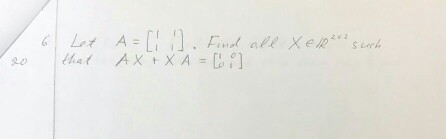 6 Let A = [1 1; 1 1]. Find all X ∈ ℝ²ˣ² such
20 that AX + XA = [1 0; 0 1]